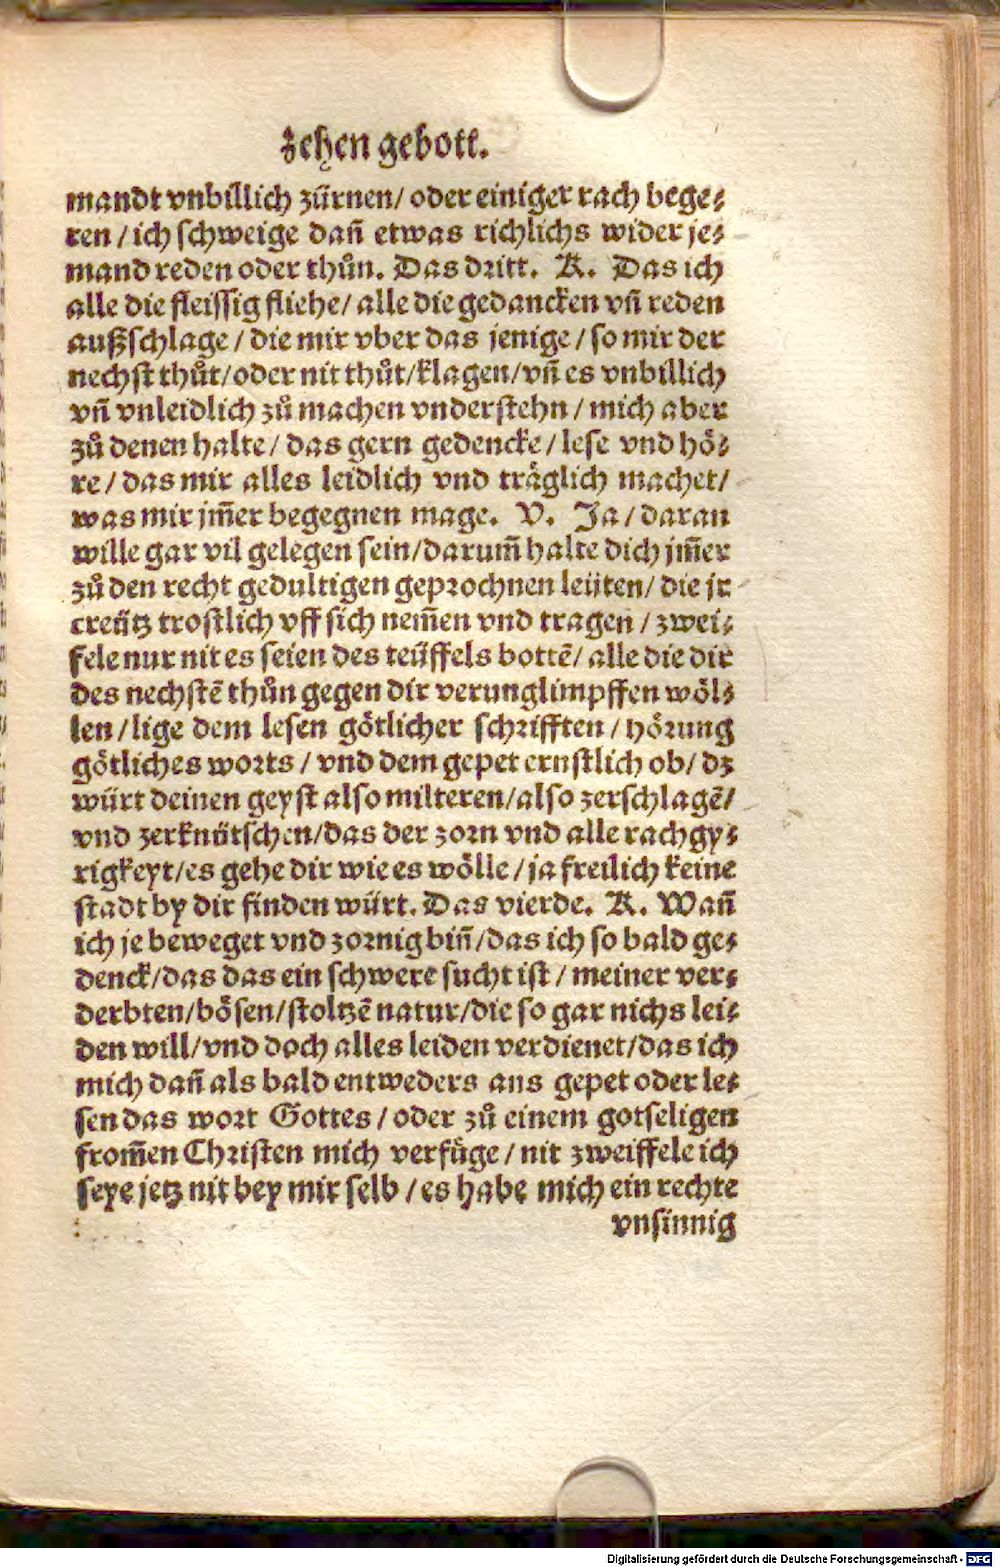 zehen gebott.
mandt vnbillich zürnen/ oder einiger rach bege⸗
ren / ich schweige dañ etwas richlichs wider je⸗
mand reden oder thůn. Das dritt. K. Das ich
alle die fleissig fliehe/ alle die gedancken vñ reden
außschlage / die mir vber das jenige / so mir der
nechst thůt/oder nit thůt/klagen/vñ es vnbillich
vñ vnleidlich zů machen vnderstehn / mich aber
zů denen halte/ das gern gedencke / lese vnd hö⸗
re / das mir alles leidlich vnd träglich machet/
was mir jm̃er begegnen mage. V. Ja / daran
wille gar vil gelegen sein/darum̃ halte dich jm̃er
zů den recht gedultigen geprochnen leüten/ die jr
creütz trostlich vff sich nem̃en vnd tragen / zwei⸗
fele nur nit es seien des teüffels bottẽ/ alle die dir
des nechstẽ thůn gegen dir verunglimpffen wöl⸗
len / lige dem lesen götlicher schrifften / hörung
götliches worts / vnd dem gepet ernstlich ob/ dz
würt deinen geyst also milteren/also zerschlagẽ/
vnd zerknütschen/das der zorn vnd alle rachgy⸗
rigkeyt/es gehe dir wie es wölle / ja freilich keine
stadt by dir finden würt. Das vierde. K. Wañ
ich je beweget vnd zornig biñ/das ich so bald ge⸗
denck/das das ein schwere sucht ist / meiner ver⸗
derbten/bösen/stoltzẽ natur/die so gar nichs lei⸗
den will/vnd doch alles leiden verdienet/das ich
mich dañ als bald entweders ans gepet oder le⸗
sen das wort Gottes / oder zů einem gotseligen
from̃en Christen mich verfüge / nit zweiffele ich
seye jetz nit bey mir selb / es habe mich ein rechte
vnsinnig
Digitalisierung gefördert durch die Deutsche Forschungsgemeinschaft - DFG